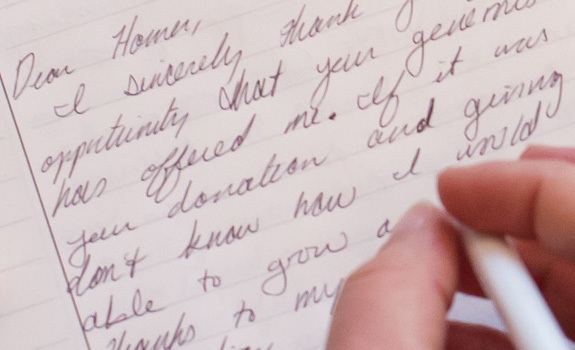 Dear Homer,
I sincerely thank
opportunity that your generous
has offered me. If it was
your donation and giving
don't know how I would
able to grow a
thanks to my